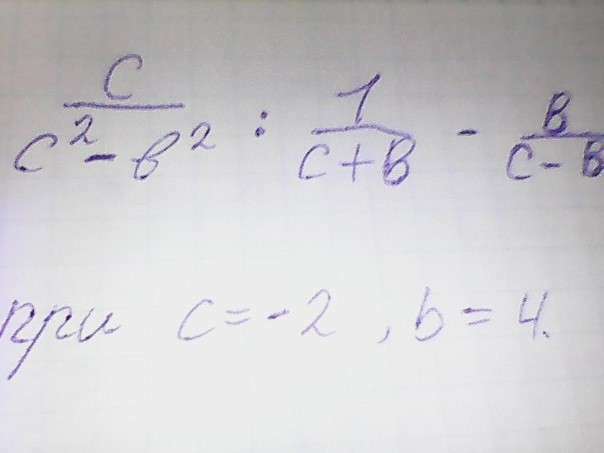 c/(c² - b²) : 1/(c+b) - b/(c-b)
при c = -2, b = 4.